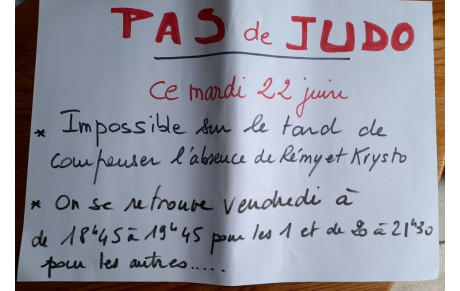 PAS de JUDO
Ce mardi 22 juin
* Impossible sur le tard de
compenser l'absence de Rémy et Krysto
* On se retrouve vendredi à
de 18h45 à 19h45 pour les 1 et de 20 à 21h30
pour les autres.....